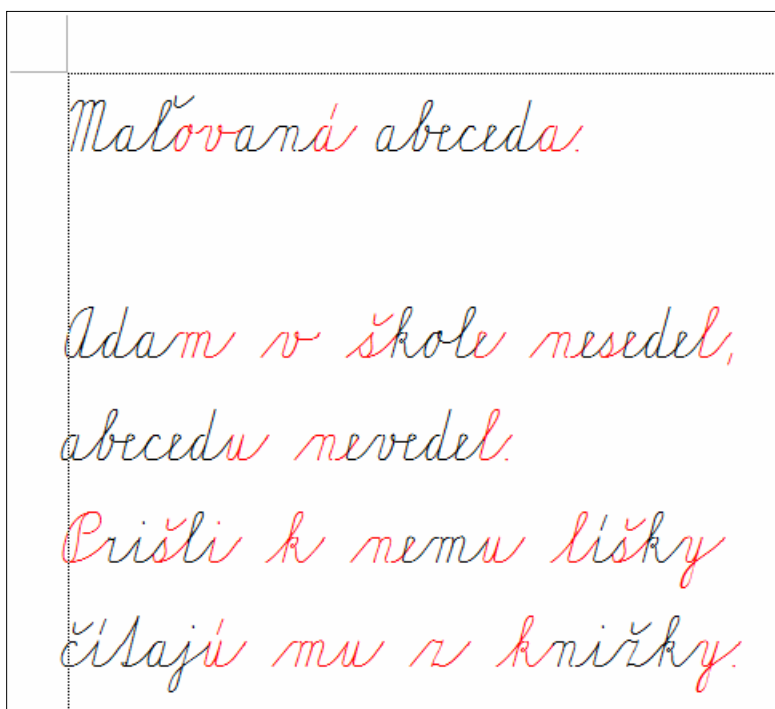 Maľovaná abeceda.
Adam v škole nesedel,
abecedu nevedel.
Prišli k nemu líšky
čítajú mu z knižky.